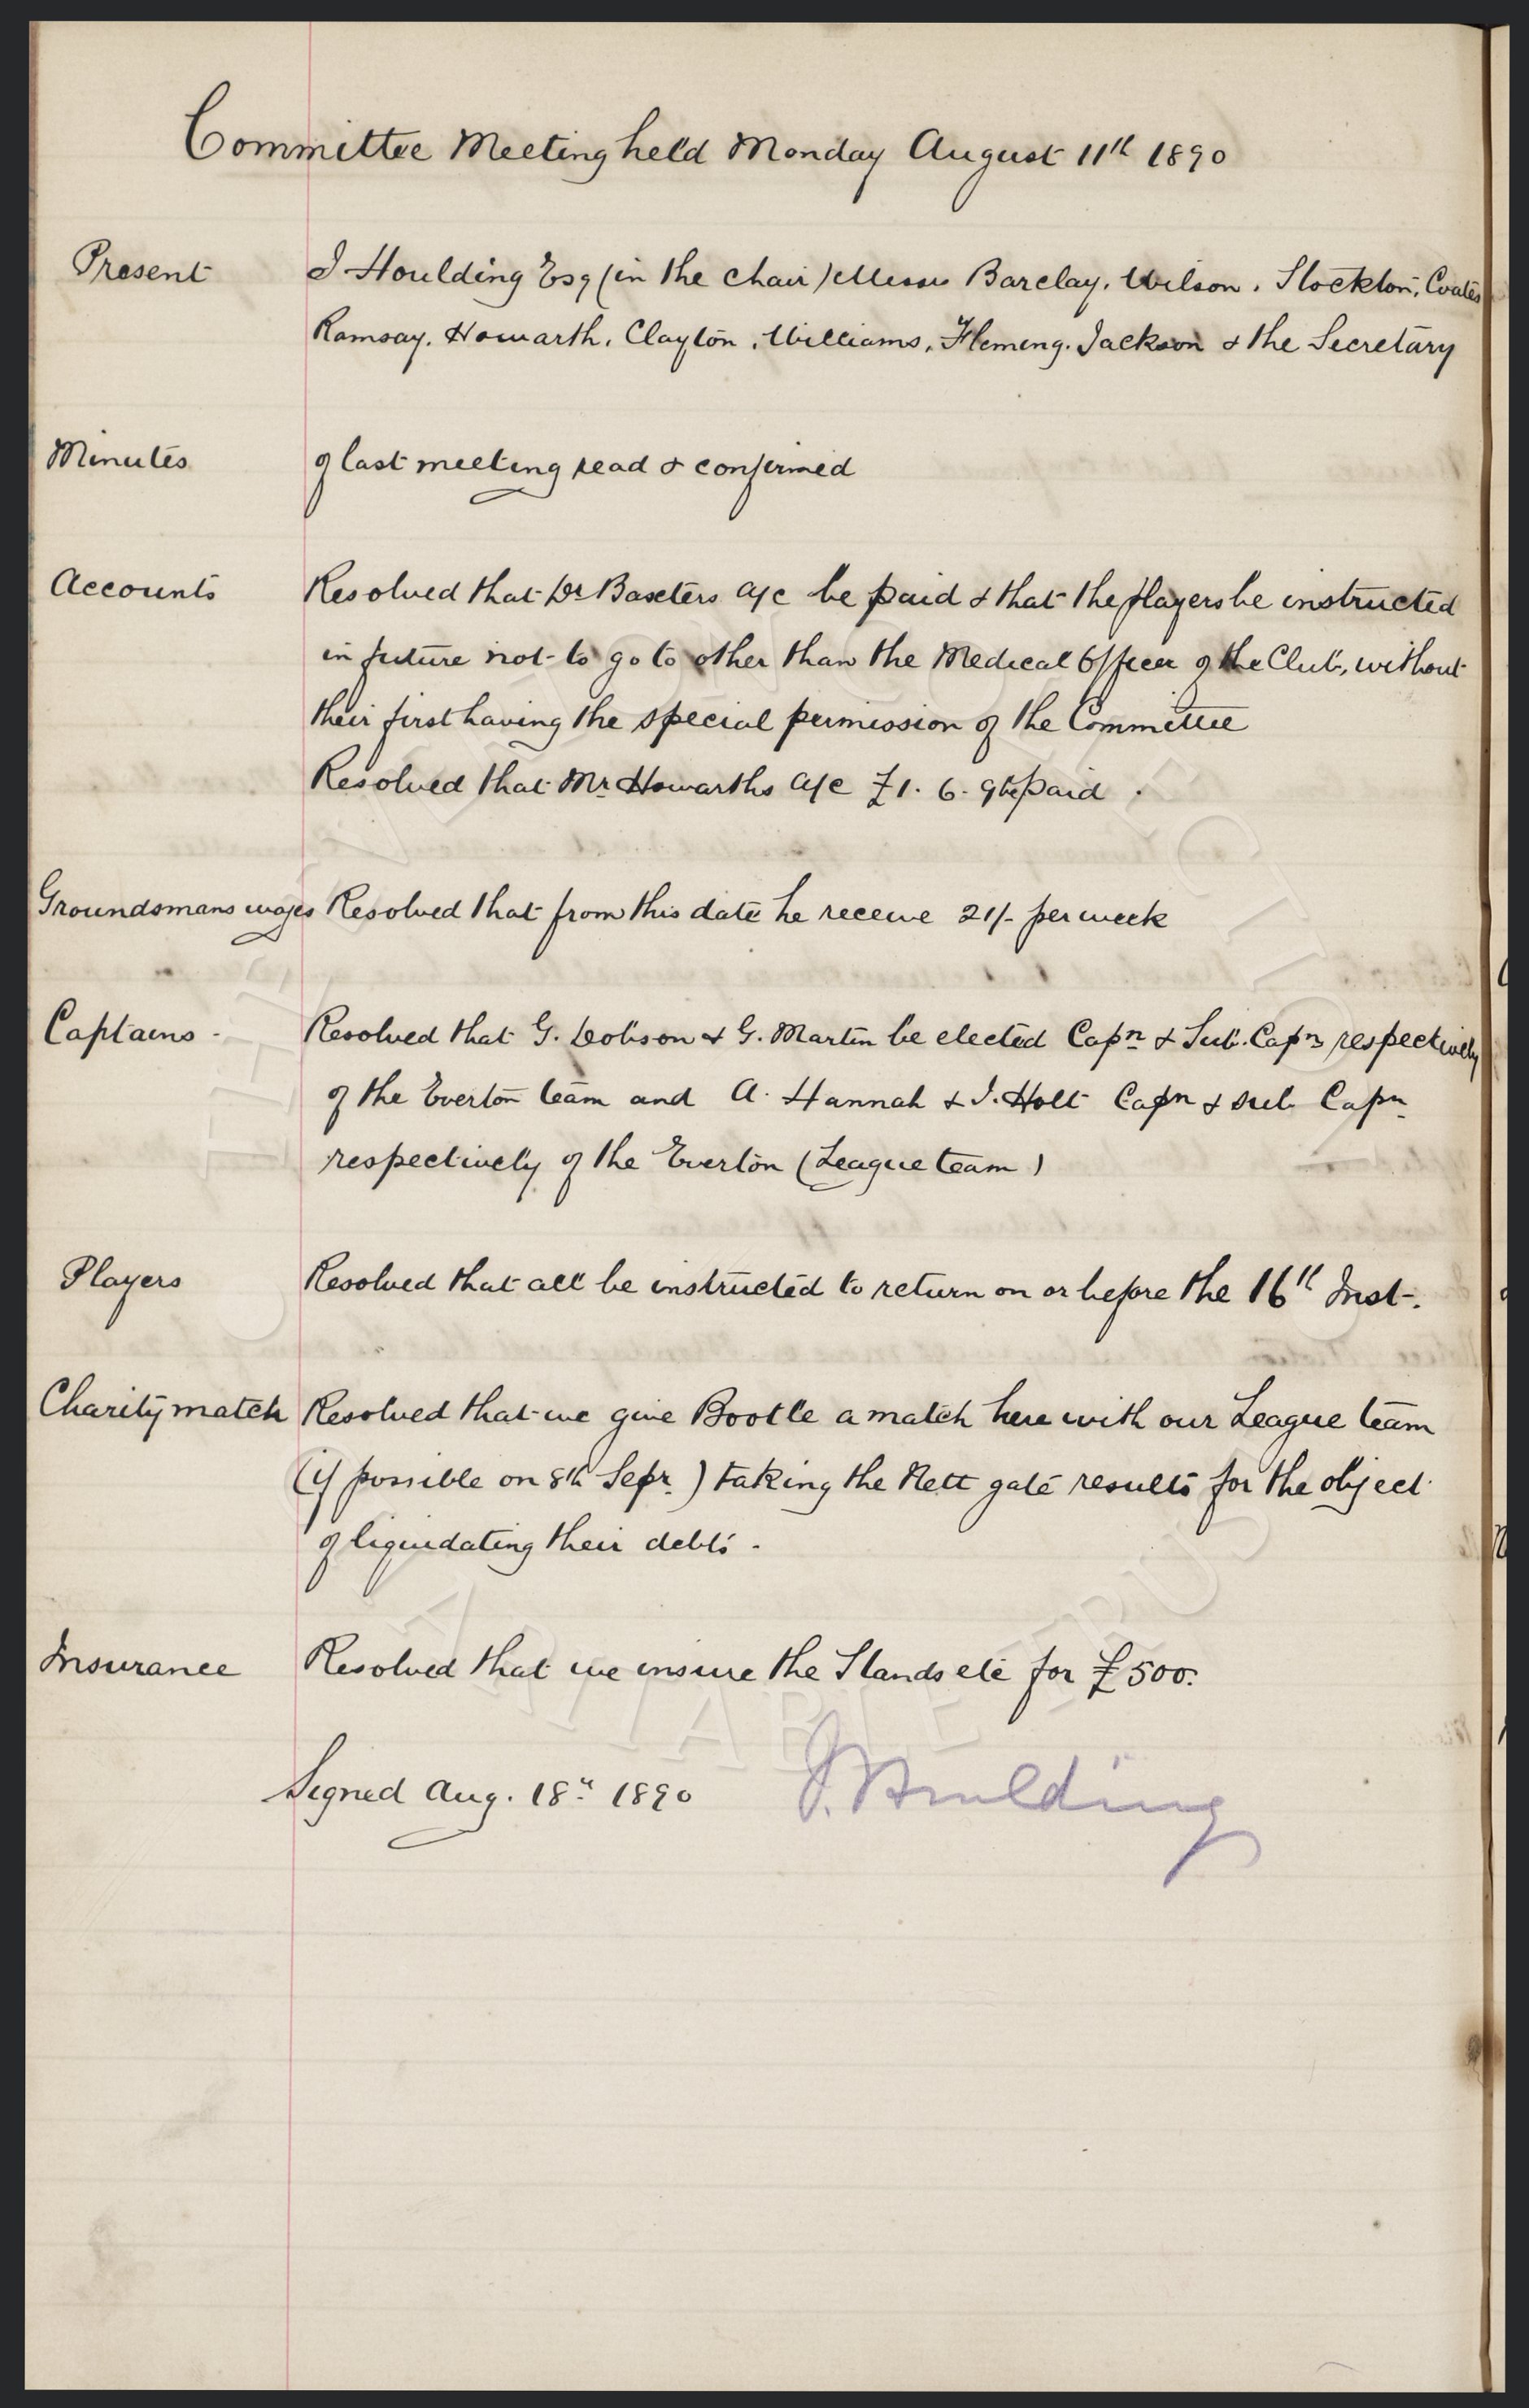 Committee Meeting held Monday August 11th 1890
Present J Houlding Esq (in the chair) Messrs Barclay, Wilson, Stockton, Coates
Ramsay, Howarth, Clayton, Williams, Fleming, Jackson & the Secretary
Minutes of last meeting read & confirmed
Accounts Resolved that Dr Baxters a/c be paid & that the players be instructed
in future not to go to other than the Medical Officer of the Club, without
their first having the special permission of the Committee
Resolved that Mr Howarths a/c £1. 6. 9 be paid.
Groundsmans wages Resolved that from this date he receive 21/- per week
Captains - Resolved that G. Dobson & G. Martin be elected Capn & Sub. Capn respectively
of the Everton team and A. Hannah & J. Holt Capn & sub Capn
respectively of the Everton (League team)
Players Resolved that all be instructed to return on or before the 16th Inst.
Charity match Resolved that we give Bootle a match here with our League team
(if possible on 8th Sepr.) taking the Nett gate results for the object
of liquidating their debts.
Insurance Resolved that we insure the Stands etc for £500.
Signed Aug. 18th 1890 J. Houlding